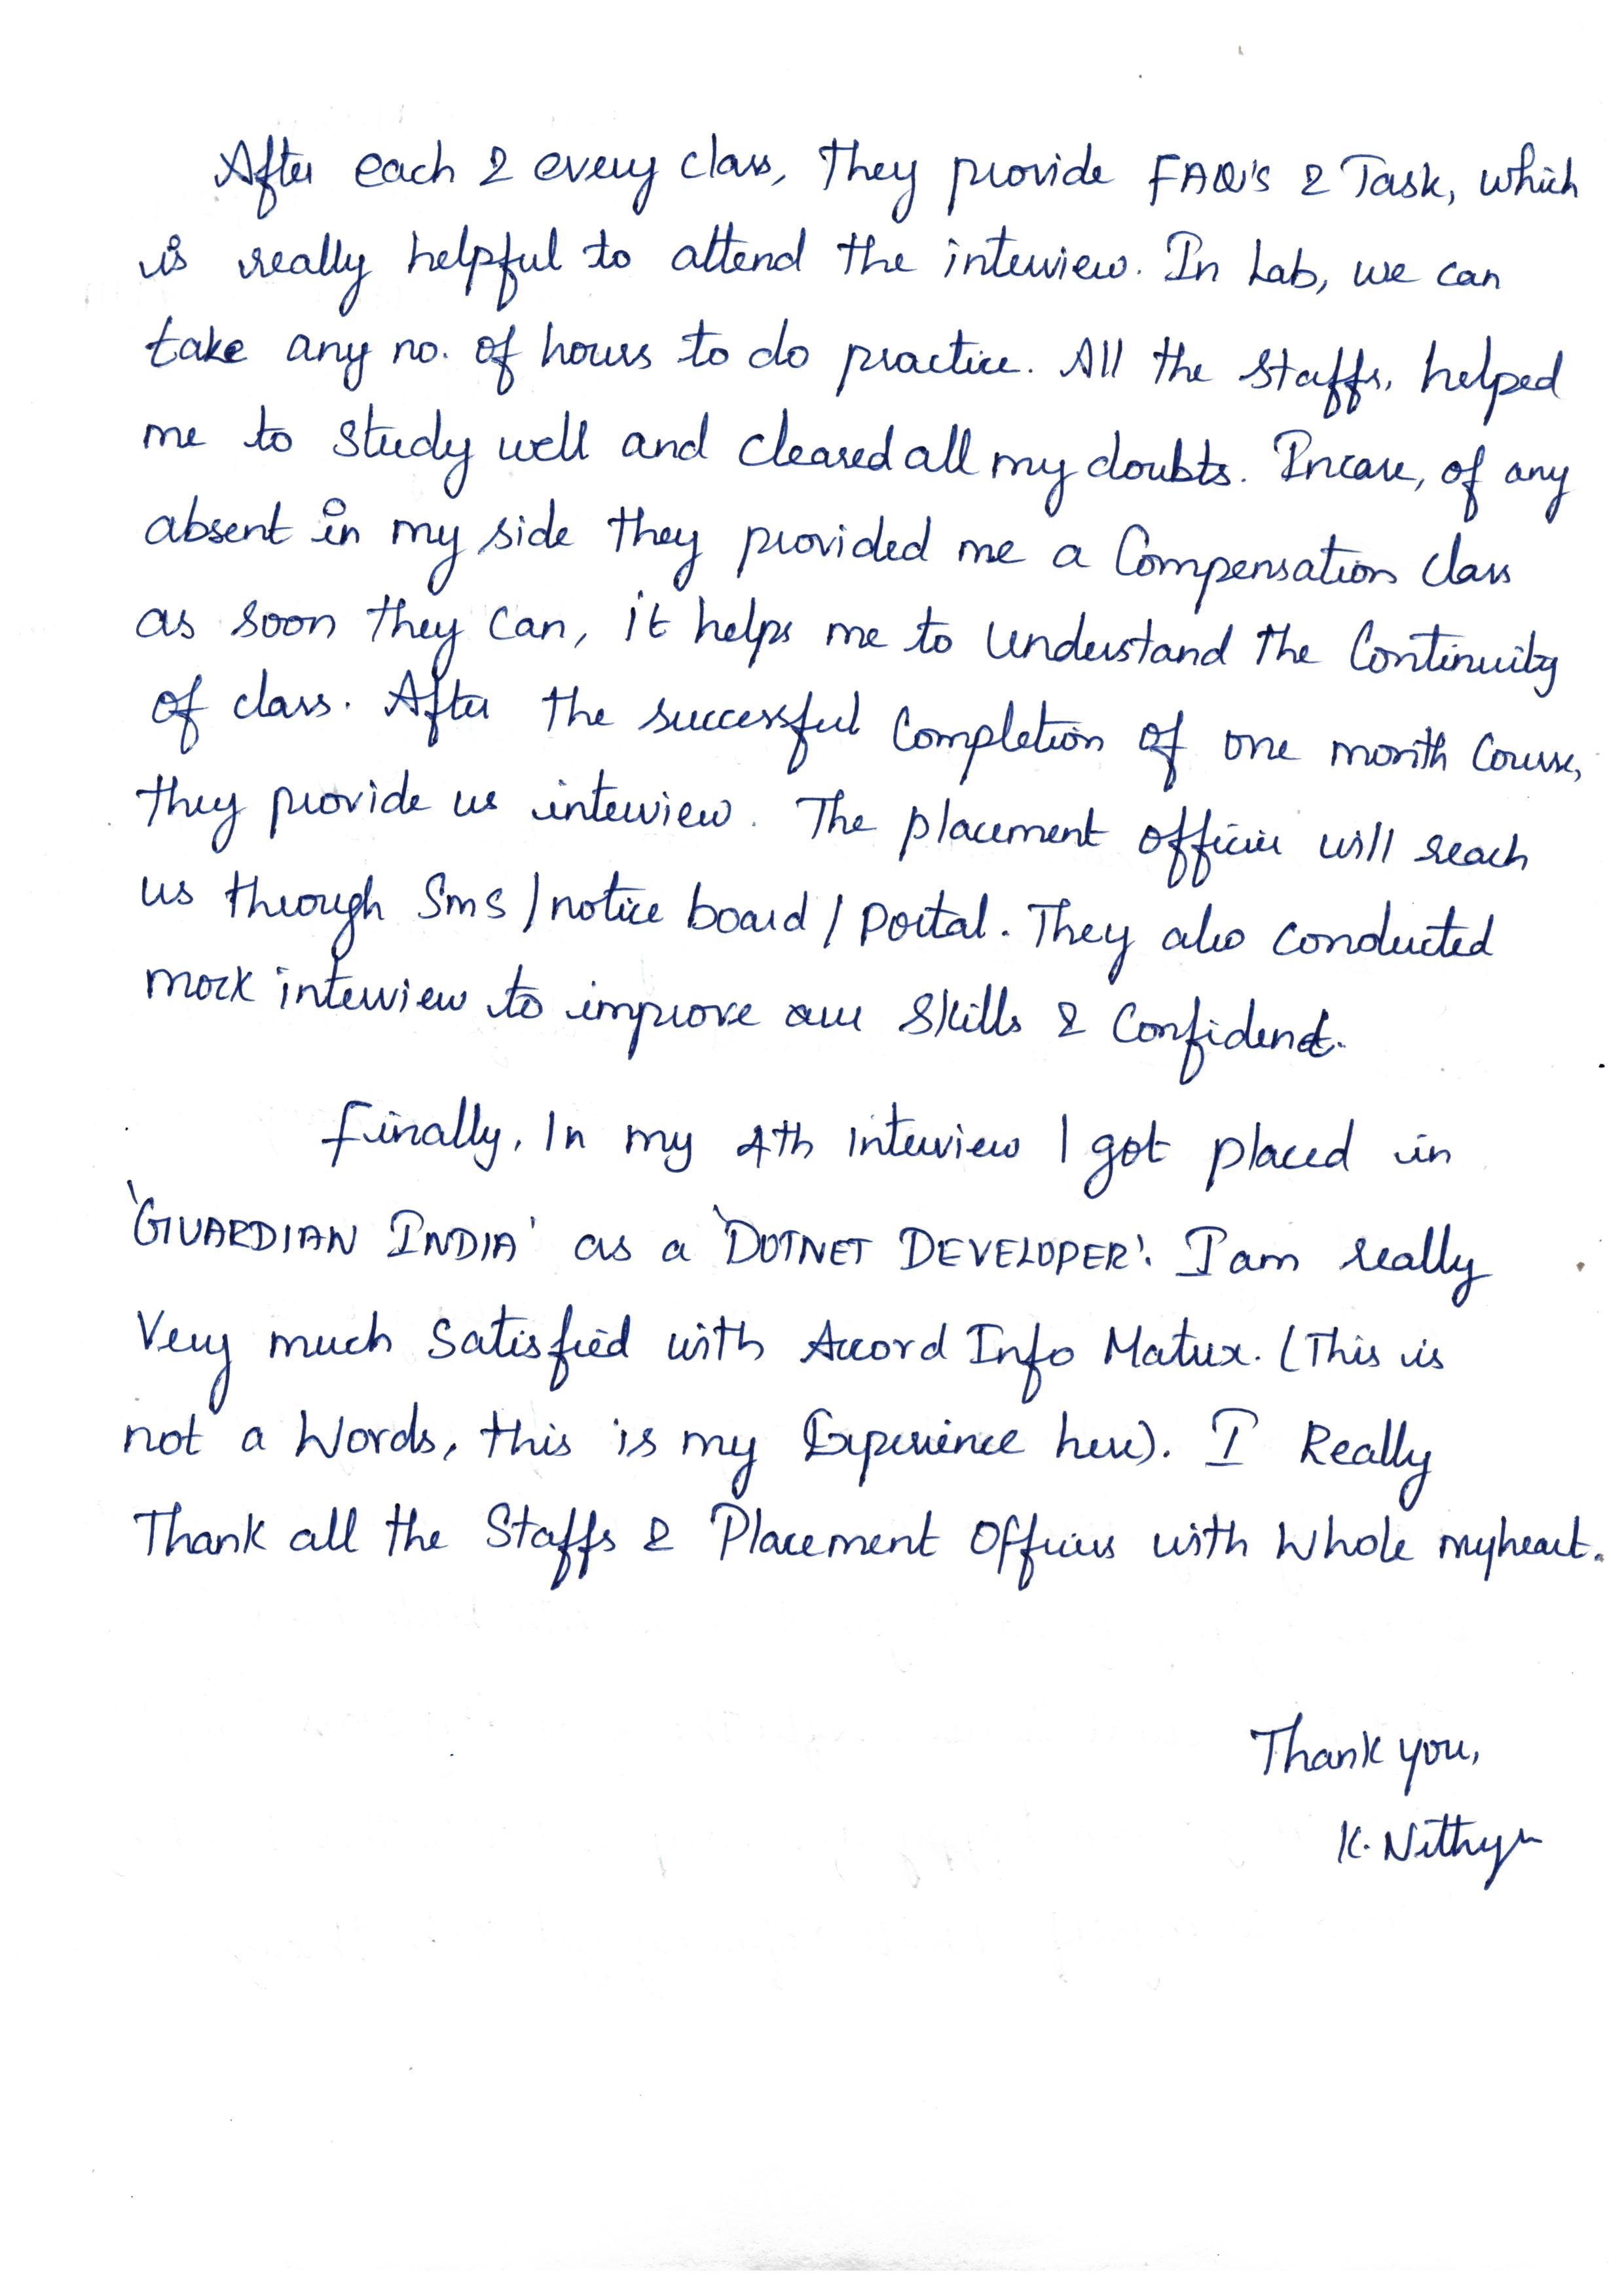 After each & every class, They provide FAQ's & Task, which
is really helpful to attend the interview. In Lab, we can
take any no. of hours to do practice. All the staffs, helped
me to study well and cleared all my doubts. Incase, of any
absent in my side they provided me a Compensation class
as soon they can, it helps me to understand the Continuity
of class. After the successful Completion of one month Course,
they provide us interview. The placement officier will reach
us through Sms / notice board / Portal. They also conducted
mock interview to improve our Skills & Confident.
Finally, In my 4th interview I got placed in
'GUARDIAN INDIA' as a 'DOTNET DEVELOPER'. I am really
Very much Satisfied with Accord Info Matrix. (This is
not a Words, this is my Experience here). I Really
Thank all the Staffs & Placement Officers with Whole my heart.
Thank you,
K. Nithya